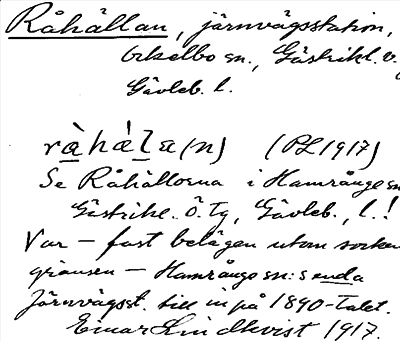 Råhällan, järnvägsstation,
Ockelbo sn., Gästrikl. v.,
Gävleb. l.
ràhála(n) (PL 1917)
Se Råhällorna i Hamrånge sn
Gästrikl. Ö. Tg, Gävleb., l.!
Var – fast belägen utom socken
gränsen – Hamrånge sn:s enda
Järnvägsst. till in på 1890-talet.
Einar Lindkvist 1917.